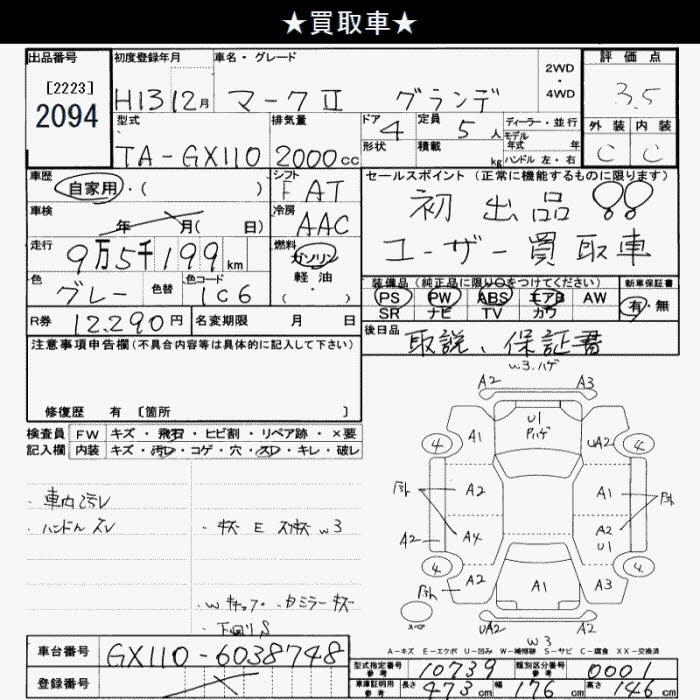 ★買取車★
出品番号
[2223]
2094
初度登録年月
H13 12月
車名・グレード
マークⅡ グランデ
2WD・4WD
評価点
3.5
外装 内装
C C
型式
TA-GX110
排気量
2000cc
ドア
4
形状
定員
5人
積載
kg
ディーラー・並行
モデル年式 年
ハンドル 左・右
車歴
自家用・( )
シフト
FAT
セールスポイント (正常に機能するものに限ります)
初出品!!
ユーザー買取車
車検
年 月( 日)
冷房
AAC
走行
9万5千199km
燃料
ガソリン
軽油
( ・ )
色
グレー
色替
色コード
1C6
R券
12,290円
名変期限 月 日
装備品 (純正品に限り○をつけてください)
PS PW ABS エアB AW
SR ナビ TV カワ
新車保証書
有・無
後日品
取説、保証書
注意事項申告欄(不具合内容等は具体的に記入して下さい)
修復歴 有 [箇所 ]
検査員記入欄
FW キズ・飛石・ヒビ割・リペア跡・×要
内装 キズ・汚レ・コゲ・穴・スレ・キレ・破レ
・車内汚レ
・ハンドルスレ
・キズ E W3
・Wキャップ・ミラーキズ
・下廻りS
W3.ハゲ
A2 A3
U1
Pハゲ
4 A1 UA2 4
A2 A1
A2 A4 A2
U1
4 A2 A1 A3 4
スペア
UA2 A2
W3
A-キズ E-エクボ U-凹み W-補修跡 S-サビ C-腐食 XX-交換済
車台番号
GX110-6038748
登録番号
型式指定番号
参考
10739
類別区分番号
参考
0001
車庫証明用
参考
長さ 473cm 幅 176cm 高さ 146cm